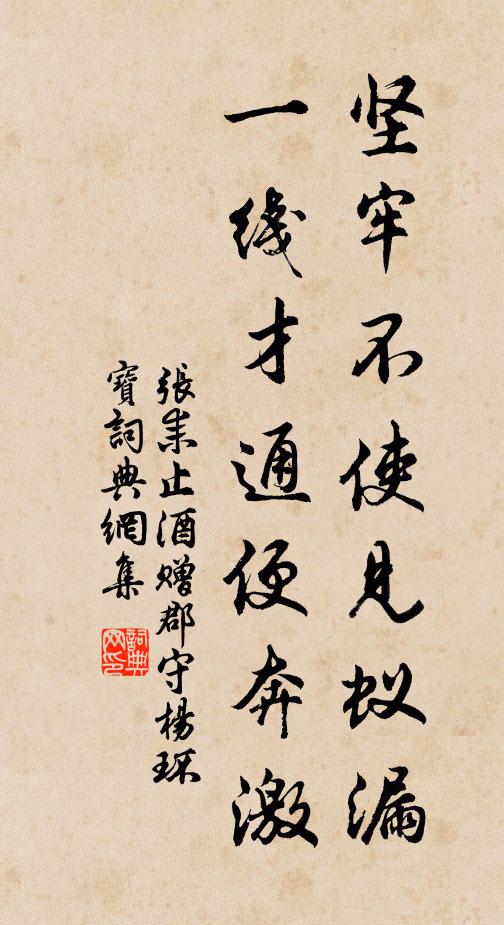 坚牢不使见蚁漏
一线才通便奔激
張耒止酒赠郡守楊环
寶詞典網集
詞典
网印